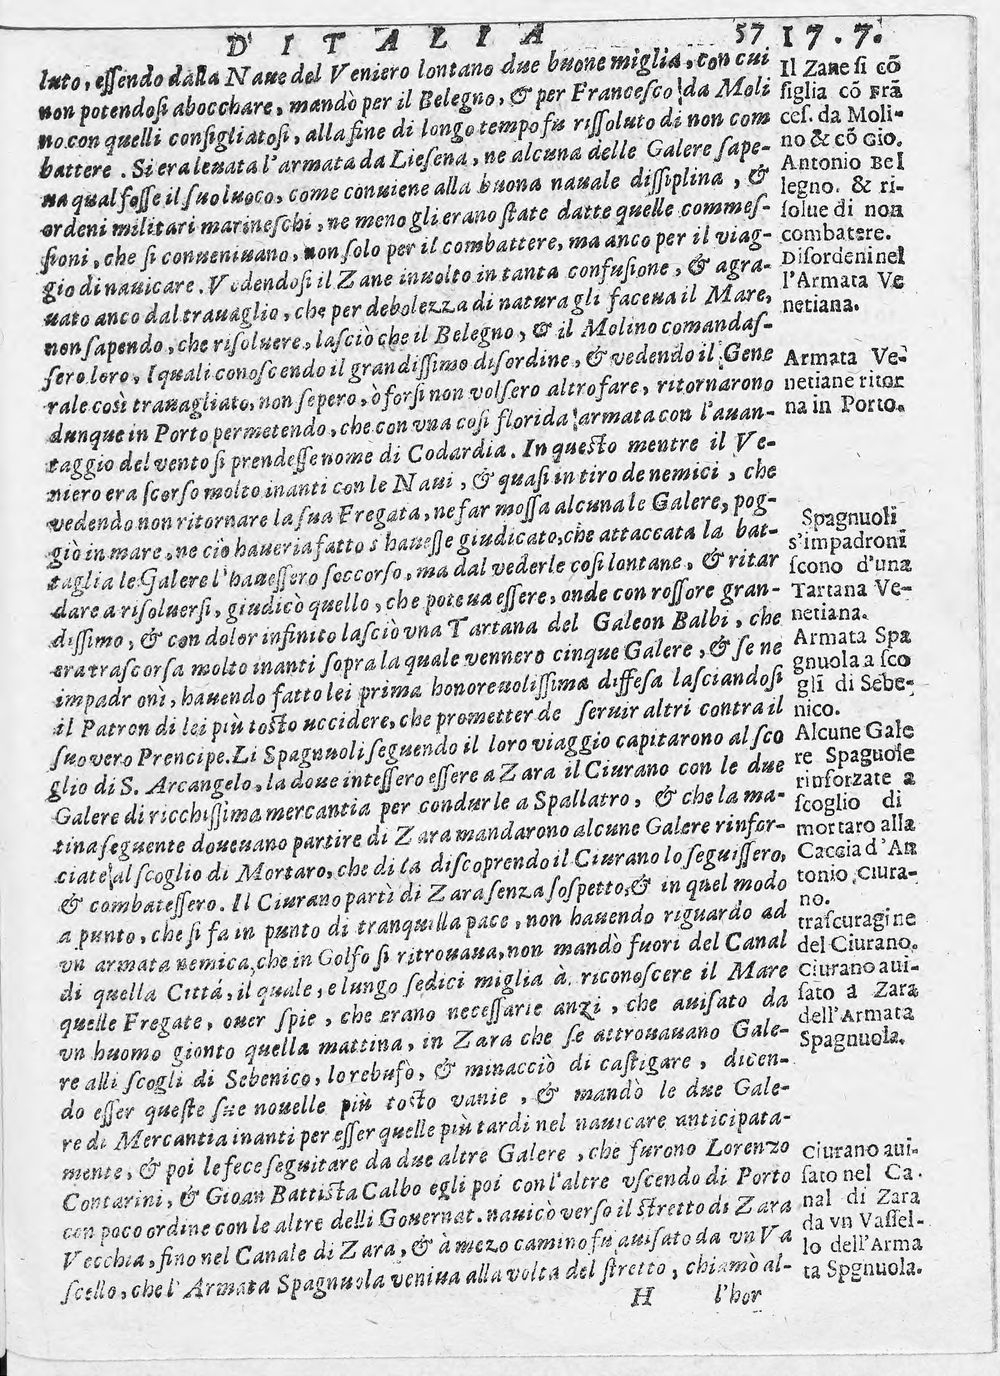 D' I T A L I A 57 17.7.
luto, essendo dalla Naue del Veniero lontano due buone miglia, con cui
non potendosi abocchare, mandò per il Belegno, & per Francesco da Moli
no con quelli consigliatosi, alla fine di longo tempo fu rissoluto di non com
battere. Si era leuata l'armata da Liesena, ne alcuna delle Galere sape-
ua qual fosse il suo luoco, come conuiene alla buona nauale dissiplina, &
ordeni militari marineschi, ne meno gli erano state datte quelle commes-
sioni, che si conueniuano, non solo per il combattere, ma anco per il viag-
gio di nauicare. Vedendosi il Zane inuolto in tanta confusione, & agra-
uato anco dal trauaglio, che per debolezza di natura gli faceua il Mare,
non sapendo, che risoluere, lasciò che il Belegno, & il Molino comandas-
sero loro, I quali conoscendo il grandissimo disordine, & vedendo il Gene
rale così trauagliato, non sepero, ò forsi non volsero altro fare, ritornarono
dunque in Porto permetendo, che con vna cosi florida armata con l'auan-
taggio del vento si prendesse nome di Codardia. In questo mentre il Ve-
niero era scorso molto inanti con le Naui, & quasi in tiro de nemici, che
vedendo non ritornare la sua Fregata, ne far mossa alcuna le Galere, pog-
giò in mare, ne ciò haueria fatto s'hauesse giudicato, che attaccata la bat-
taglia le Galere l'hauessero soccorso, ma dal vederle cosi lontane, & ritar
dare a risoluersi, giudicò quello, che poteua essere, onde con rossore gran-
dissimo, & con dolor infinito lasciò vna Tartana del Galeon Balbi, che
era trascorsa molto inanti sopra la quale vennero cinque Galere, & se ne
impadronì, hauendo fatto lei prima honoreuolissima diffesa lasciandosi
il Patron di lei più tosto uccidere, che prometter de seruir altri contra il
suo vero Prencipe. Li Spagnuoli seguendo il loro viaggio capitarono al sco
glio di S. Arcangelo, la doue intessero essere a Zara il Ciurano con le due
Galere di ricchissima mercantia per condurle a Spallatro, & che la ma-
tina seguente doueuano partire di Zara mandarono alcune Galere rinfor-
ciate al scoglio di Mortaro, che di la discoprendo il Ciurano lo seguissero,
& combatessero. Il Ciurano partì di Zara senza sospetto, & in quel modo
a punto, che si fa in punto di tranquilla pace, non hauendo riguardo ad
vn armata nemica, che in Golfo si ritrouaua, non mandò fuori del Canal
di quella Città, il quale, e lungo sedici miglia à riconoscere il Mare
quelle Fregate, ouer spie, che erano necessarie anzi, che auisato da
vn huomo gionto quella mattina, in Zara che se attrouauano Gale-
re alli scogli di Sebenico, lo rebufò, & minacciò di castigare, dicen-
do esser queste sue nouelle più tosto vanie, & mandò le due Gale-
re di Mercantia inanti per esser quelle più tardi nel nauicare anticipata-
mente, & poi le fece seguitare da due altre Galere, che furono Lorenzo
Contarini, & Gioan Battista Calbo egli poi con l'altre vscendo di Porto
con poco ordine con le altre delli Gouernat. nauicò verso il stretto di Zara
Vecchia, fino nel Canale di Zara, & à mezo camino fu auisato da vn Va
scello, che l'Armata Spagnuola veniua alla volta del stretto, chiamò al-
H l'hor
Il Zane si cō
siglia cō Frā
ces. da Moli-
no & cō Gio.
Antonio Bel
legno. & ri-
solue di non
combatere.
Disordeni nel
l'Armata Ve
netiana.
Armata Ve-
netiane ritor
na in Porto.
Spagnuoli
s'impadroni
scono d'una
Tartana Ve-
netiana.
Armata Spa
gnuola a sco
gli di Sebe-
nico.
Alcune Gale
re Spaguole
rinforzate a
scoglio di
mortaro alla
Caccia d'An
tonio Ciura-
no.
trascuragine
del Ciurano.
Ciurano aui-
sato a Zara
dell'Armata
Spagnuola.
Ciurano aui-
sato nel Ca-
nal di Zara
da vn Vassel-
lo dell'Arma
ta Spgnuola.